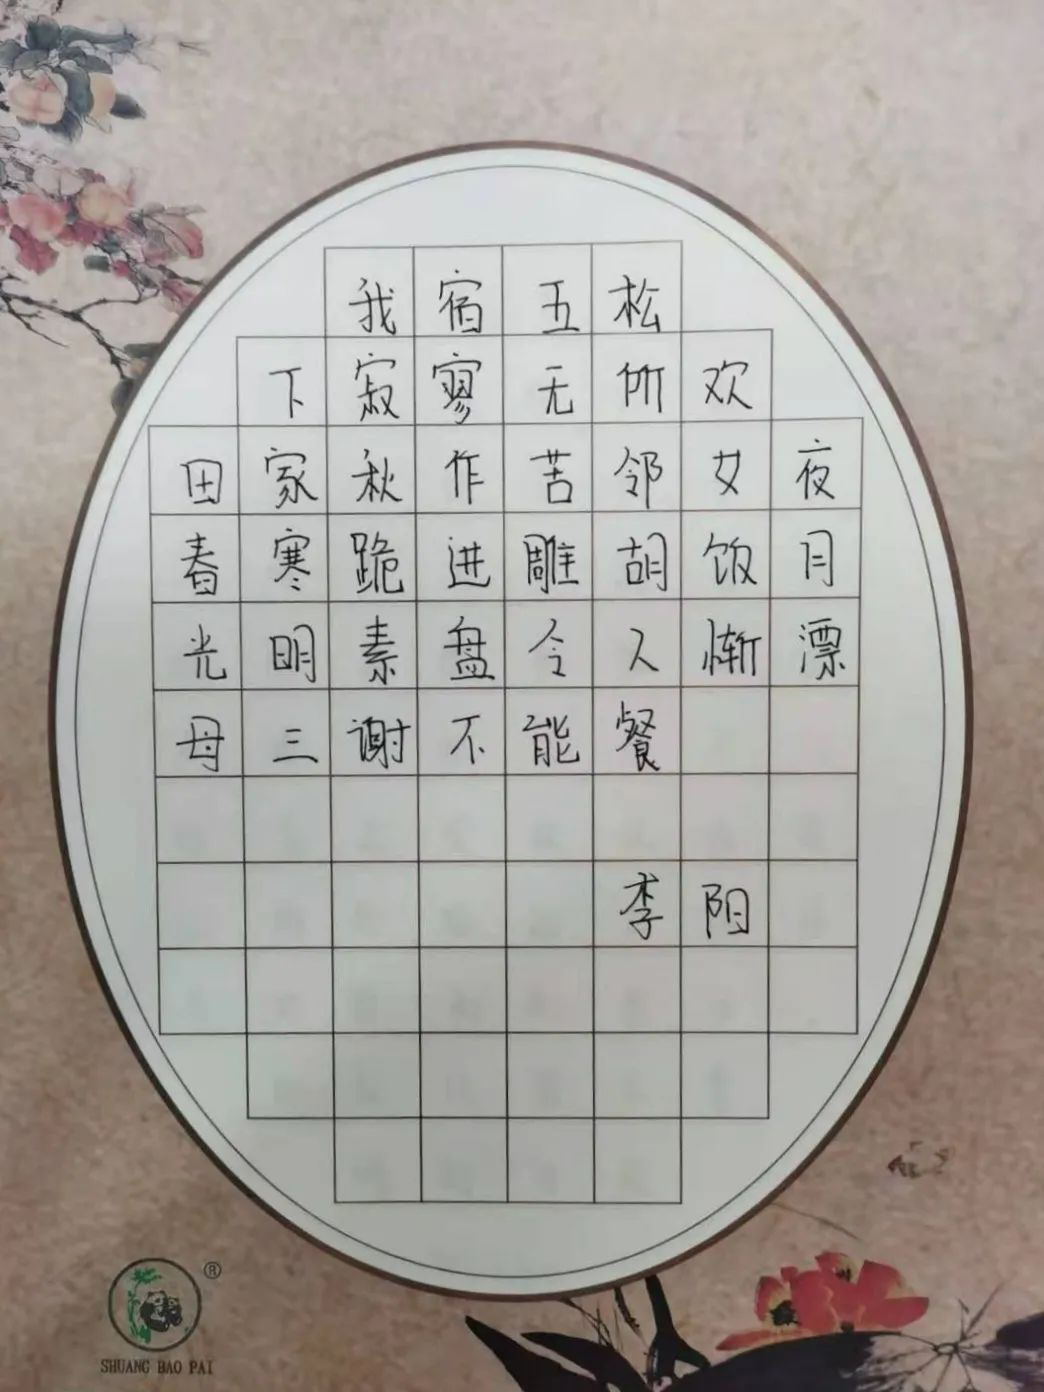 我宿五松
下寂寥无所欢
田家秋作苦邻女夜
春寒跪进雕胡饭月
光明素盘令人惭漂
母三谢不能餐
李阳
®
SHUANG BAO PAI